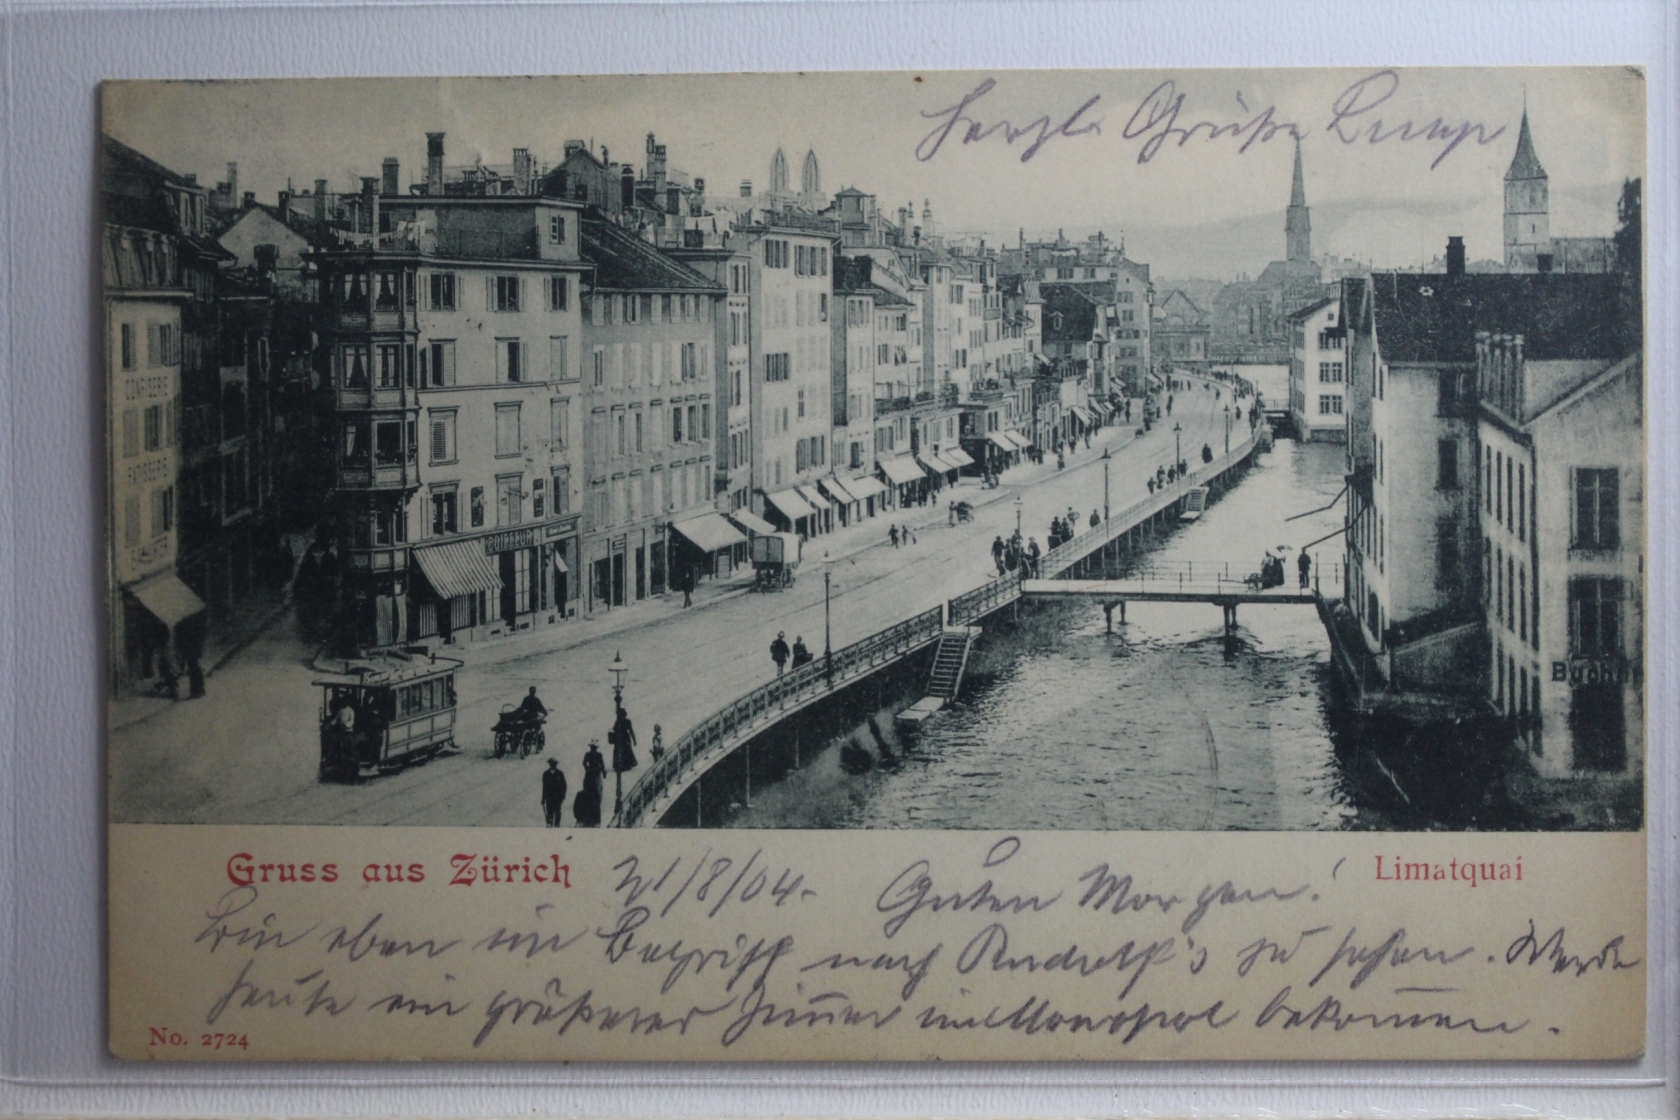 Herzl. Grüße
CONFISERIE
PATISSERIE
COIFFEUR
Buch
Gruss aus Zürich 21/8/04. Guten Morgen! Limatquai
Bin eben im Begriff nach Rudolf's zu sehen. Werde
heute ein größeres Zimmer im Monopol bekommen.
No. 2724